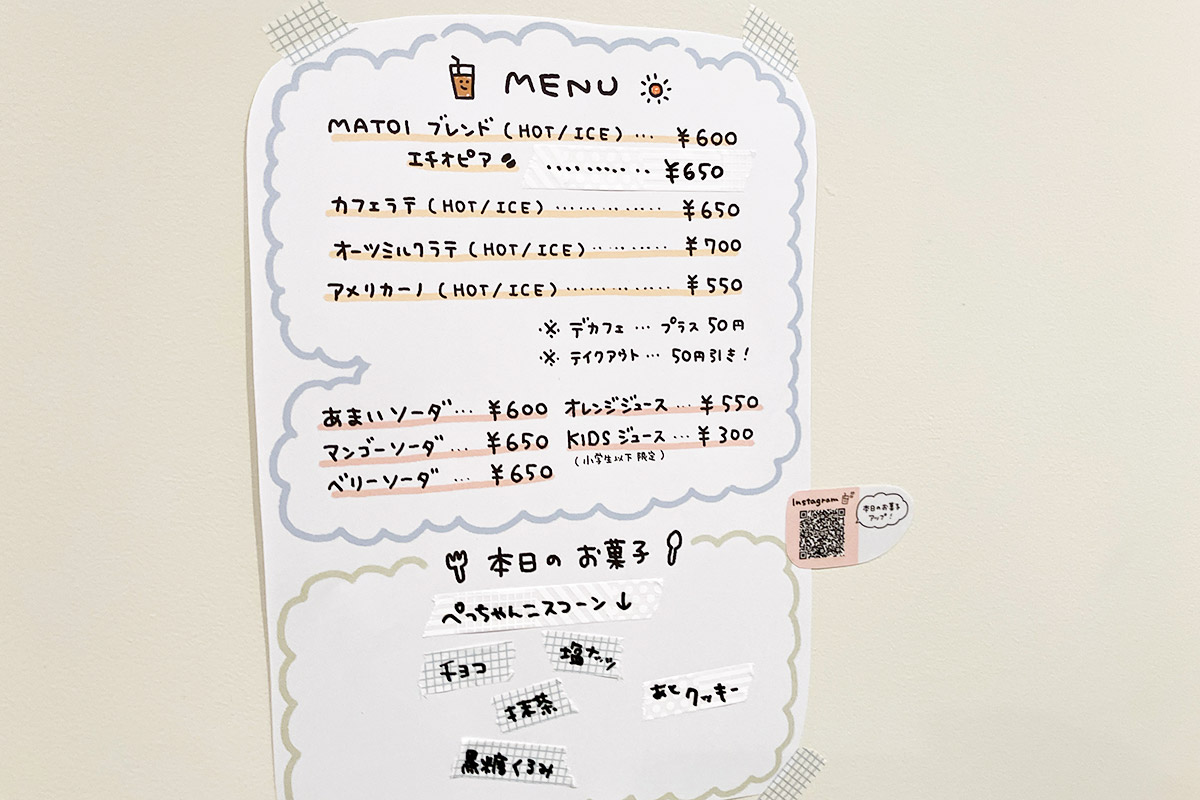 MENU
MATOI ブレンド (HOT/ICE) … ¥600
エチオピア ……… ¥650
カフェラテ (HOT/ICE) ………… ¥650
オーツミルクラテ (HOT/ICE) ……… ¥700
アメリカーノ (HOT/ICE) ………… ¥550
※ デカフェ … プラス 50円
※ テイクアウト … 50円引き!
あまいソーダ… ¥600
マンゴーソーダ … ¥650
ベリーソーダ … ¥650
オレンジジュース … ¥550
KIDS ジュース … ¥300
(小学生以下 限定)
Instagram
本日のお菓子
アップ!
本日の お菓子
ぺっちゃんこスコーン ↓
チョコ
塩ナッツ
抹茶
あとクッキー
黒糖くるみ